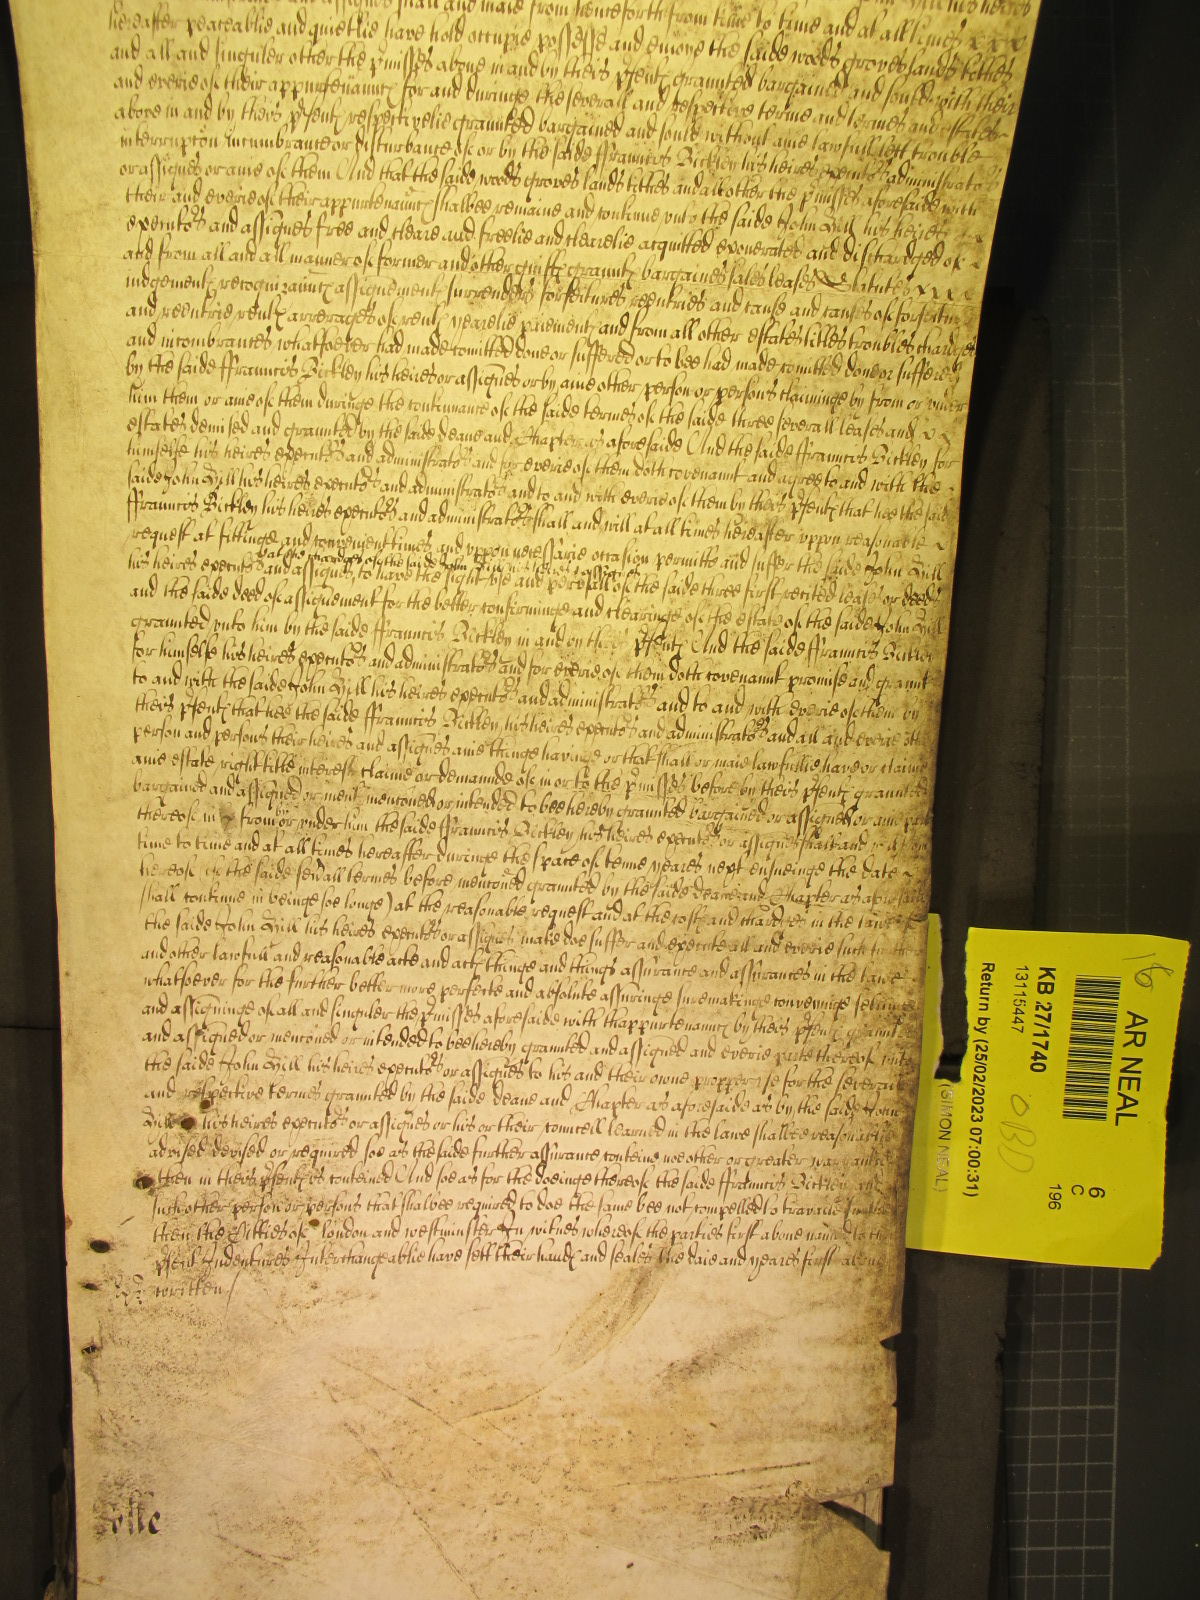 and assignes shall and maie from henceforth from time to time and at all times
hereafter peaceablie and quietlie have hold occupie possesse and enioye the saide woods groves lands tithes
and all and singuler other the p'misses above in and by theis p'sentℯ graunted bargained and sould with their
and everie of their appurtenauncℯ for and duringe the severall and respective terme and termes and estates
above in and by theis p'sentℯ respectivelie graunted bargained and sould without anie lawfull lett trouble
interruptōn incumbrance or disturbance of or by the saide ffrauncis Bickley his heires executors administrators
or assignes or anie of them And that the saide woods groves lands tithes and all other the p'misses aforesaide with
their and everie of their appurtenauncℯ shalbee remaine and continue unto the saide John Hill his heires
executors and assignes free and cleare and freelie and clearelie acquitted exonerated and dischardged of
and from all and all manner of former and other guiftℯ grauntℯ bargaines sales leases Statutes
iudgementℯ recognizauncℯ assignementℯ surrenders forfeitures reentries and cause and causes of forfeiture
and reentrie rentℯ arrerages of rentℯ yearelie paiementℯ and from all other estates titles troubles chardges
and incombrances whatsoever had made comitted done or suffered or to bee had made comitted done or suffered
by the saide ffrauncis Bickley his heires or assignes or by anie other person or persons claiminge by from or under
him them or anie of them duringe the continuance of the saide termes of the saide three severall leases and
estates demised and graunted by the saide deane and Chapter as aforesaide And the saide ffrauncis Bickley for
himselfe his heires executors and administrators and for everie of them doth covenaunt and agree to and with the
saide John Hill his heires executors and administrators and to and with everie of them by theis p'sentℯ that hee the said
ffrauncis Bickley his heires executors and administrators shall and will at all times hereafter uppon reasonable
request at fittinge and convenient times and uppon necessarie occasion permitt and suffer the saide John Hill
at the chardges of the saide John Hill his heires or assignes
his heires executors and assignes to have the sight use and perusall of the saide three first recited leases or deeds
and the saide deed of assignement for the better confirminge and clearinge of the estate of the saide John Hill
graunted unto him by the saide ffrauncis Bickley in and by theis p'sentℯ And the saide ffrauncis Bickley
for himselfe his heires executors and administrators and for everie of them doth covenaunt promise and graunt
to and with the saide John Hill his heires executors and administrators and to and with everie of them by
theis p'sentℯ that hee the saide ffrauncis Bickley his heires executors and administrators and all and everie other
person and persons their heires and assignes anie thinge havinge or that shall or maie lawfullie have or claime
anie estate right title interest claime or demaunde of in or to the p'misses before by theis p'sentℯ graunted
bargained and assigned or mentℯ mencōned or intended to bee hereby graunted bargained or assigned or anie parte
thereof in from or under him the saide ffrauncis Bickley his heires executors or assignes shall and will from
time to time and at all times hereafter duringe the space of tenne yeares next ensueinge the date
hereof if the saide sev'all termes before mencōned graunted by the saide deane and Chapter as aforesaide
shall continue in beinge soe longe) at the reasonable request and at the costℯ and chardges in the lawe of
the saide John Hill his heires executors or assignes make doe suffer and execute all and everie such further
and other lawfull and reasonable acte and actℯ thinge and things assurance and assurances in the lawe
whatsoever for the further better more perfecte and absolute assuringe suremakinge conveyinge setlinge
and assigninge of all and singuler the p'misses aforesaide with thappurtenauncℯ by theis p'sentℯ graunted
and assigned or mencōned or intended to bee hereby graunted and assigned and everie parte thereof unto
the saide John Hill his heires executors or assignes to his and their owne propper use for the severall
and respective termes graunted by the saide deane and Chapter as aforesaide as by the saide John
Hill his heires executors or assignes or his or their councell learned in the lawe shalbee reasonablie
advised devised or required soe as the saide further assurance conteine noe other or greater warrantie
then in theis p'sentℯ is conteined And soe as for the doeinge thereof the saide ffrauncis Bickley and
such other person or persons that shalbee required to doe the same bee not compelled to travaile further
then the Citties of London and westminster In witnes whereof the parties first above named to theis
p'sent Indentures Interchangeablie have sett their handℯ and seales the daie and yeares first above
written
AR NEAL
KB 27/1740
13115447
Return by (25/02/2023 07:00:31)
6
C
196
16
OBD
(SIMON NEAL)